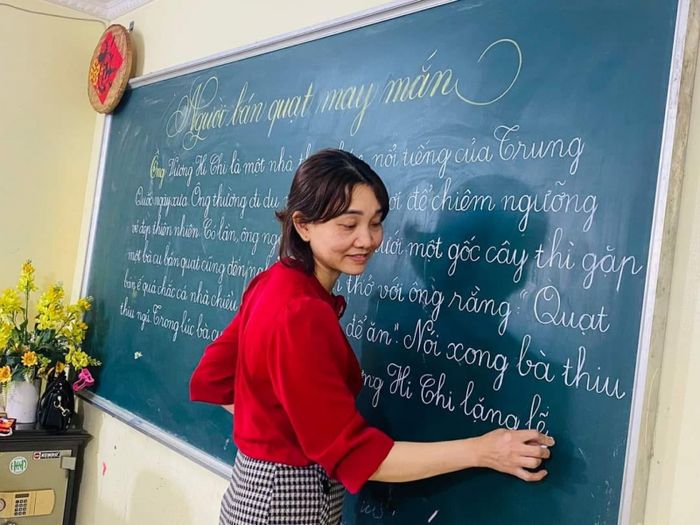 Người bán quạt may mắn
Ông Vương Hi Chi là một nhà nổi tiếng của Trung
Quốc ngày xưa. Ông thường đi du để chiêm ngưỡng
vẻ đẹp thiên nhiên. Có lần, ông một gốc cây thì gặp
một bà cụ bán quạt cũng đến thở với ông rằng: "Quạt
bán ế quá chắc cả nhà chiều để ăn". Nói xong bà thiu
thiu ngủ. Trong lúc bà Hi Chi lặng lẽ